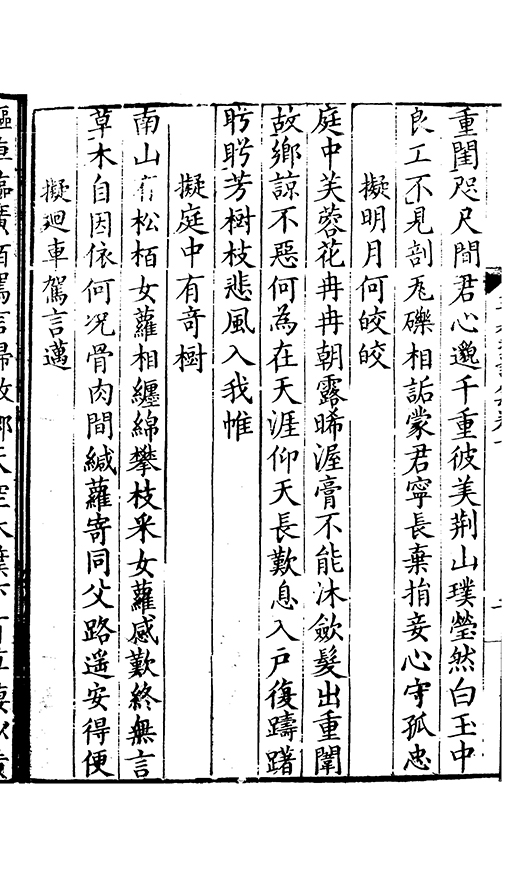 重閨咫尺間君心邈千重彼美荆山璞瑩然白玉中
良工不見剖瓦礫相詬蒙君寧長棄捐妾心守孤忠
擬明月何皎皎
庭中芙蓉花冉冉朝露晞渥膏不能沐歛髮出重闈
故鄉諒不惡何為在天涯仰天長歎息入戶復躊躇
盻盻芳樹枝悲風入我帷
擬庭中有竒樹
南山有松栢女蘿相纏綿攀枝采女蘿感歎終無言
草木自因依何况骨肉間緘蘿寄同父路遥安得便
擬廻車駕言邁
驅車臨廣陌駕言歸故鄉天空木葉下百草凄以黃